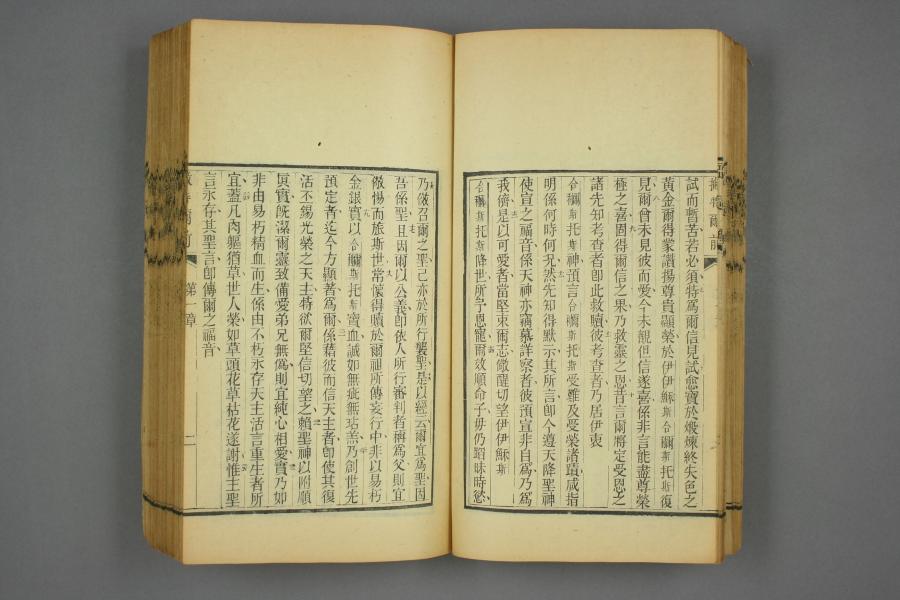 試而暫苦若必須特爲爾信見試愈寶於煅煉終失色之
黃金爾得蒙讃揚尊貴顯榮於伊伊穌斯合爾斯托斯復
見爾曾未見彼而愛今未覩但信遂喜係非言能盡尊榮
極之喜固得爾信之果乃救靈之恩昔言爾將定受恩之
諸先知考查者卽此救贖彼考查者乃居伊衷
合爾斯托斯神預言合爾斯托斯受難及受榮諸蹟咸指
明係何時何況然先知得默示其所言卽今遵天降聖神
使宣之福音係天神亦竊慕詳察者彼預宣非自爲乃爲
我儕是以可愛者當堅束爾志儆醒切望伊伊穌斯
合爾斯托斯降世所予恩寵爾效順命子毋仍蹈昧時慾
乃倣召爾之聖己亦於所行襲聖是以經云爾宜爲聖因
吾係聖且因爾以公義卽依人所行審判者稱爲父則宜
儆惕而旅斯世常懷得贖於爾祖所傳妄行中非以易朽
金銀實以合爾斯托斯寶血誠如無疵無玷羔乃創世先
預定者迄今方顯著爲爾係藉彼而信天主者卽使其復
活丕錫光榮之天主特欲爾堅信切望之賴聖神以附順
眞實旣潔爾靈致備愛弟兄無僞則宜純心相愛實乃如
非由易朽精血而生係由不朽永存天主活言重生者所
宜蓋凡肉軀猶草世人榮如草頭花草枯花遂謝惟主聖
言永存其聖言卽傳爾之福音
第一章
二